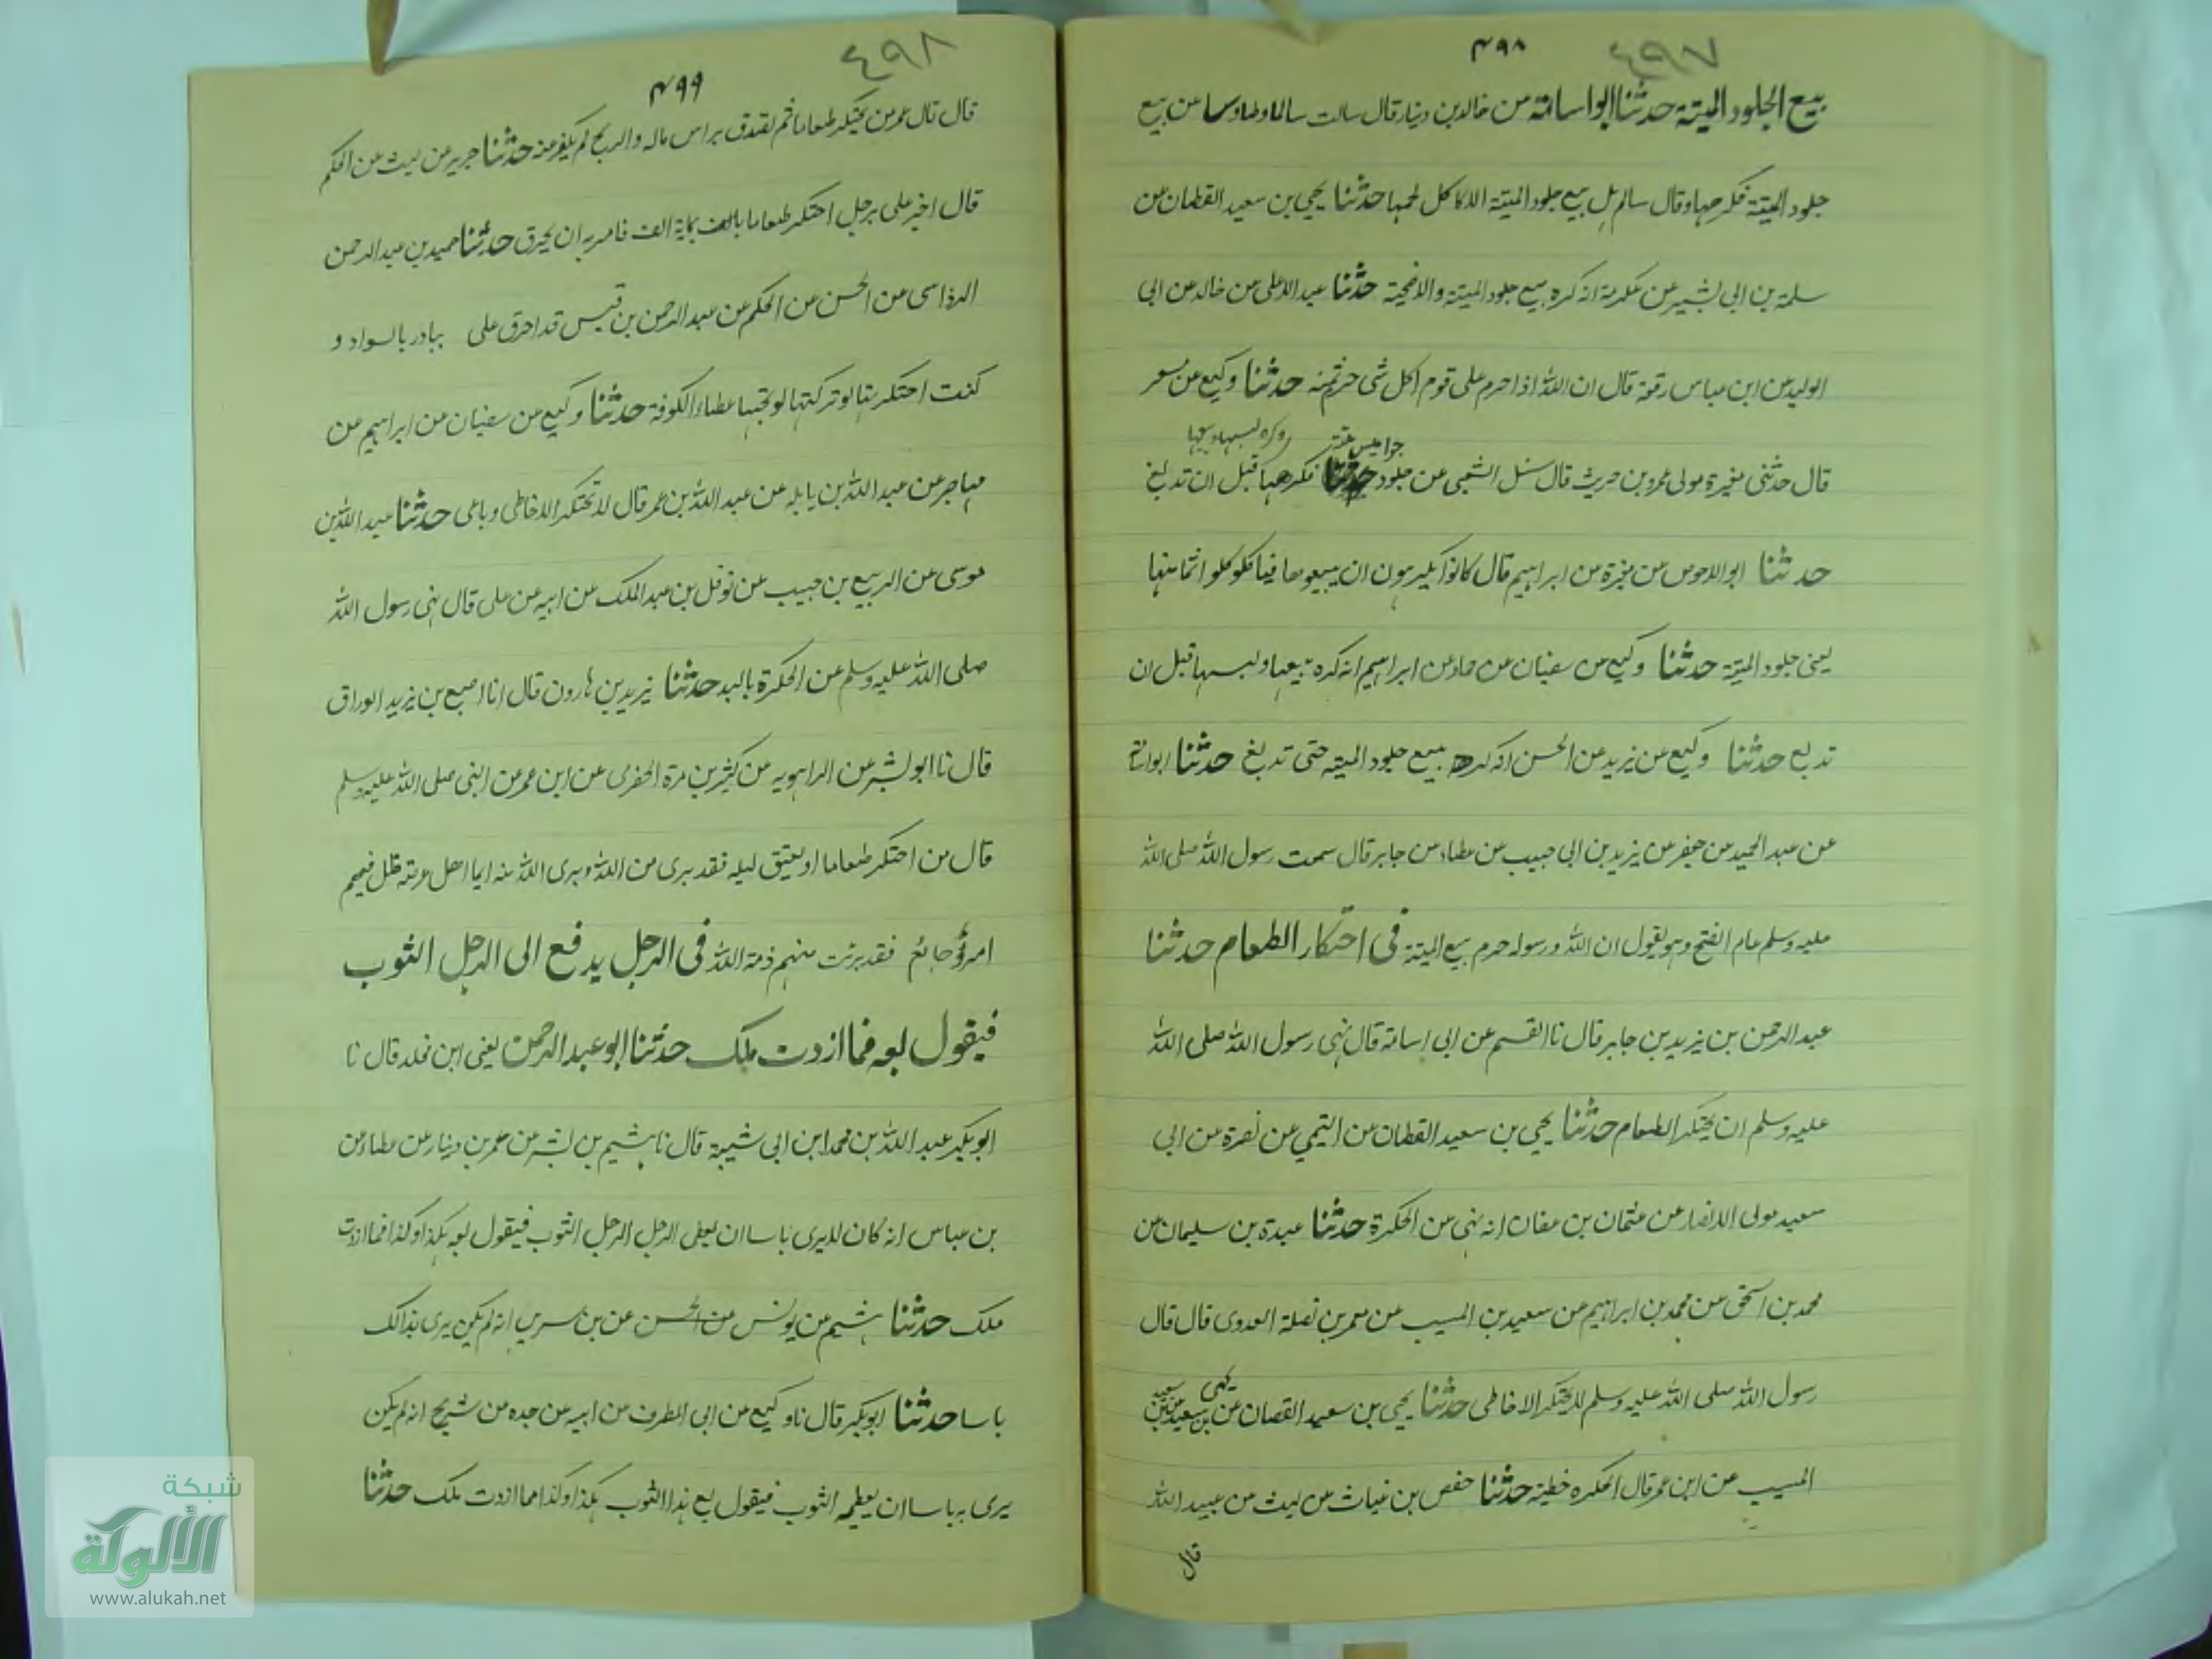 ٤٩٧
٤٩٨
بيع الجلود الميتة حدثنا ابو اسامة عن خالد بن دينار قال سالت سالما وطاوسا عن بيع
جلود الميتة فكرهاه وقال سالم هل بيع جلود الميتة الا كاكل لحمها حدثنا يحيى بن سعيد القطان عن
سلمة بن ابي بشير عن عكرمة انه كره بيع جلود الميتة والاضحية حدثنا عبد الاعلى عن خالد عن ابي
الوليد عن ابن عباس رفعه قال ان الله اذا حرم على قوم اكل شى حرم ثمنه حدثنا وكيع عن مسعر
قال حدثنى مغيرة مولى عمرو بن حريث قال سئل الشعبى عن جلود جواميس ميتة فكرهها قبل ان تدبغ وكره لبسها وبيعها
حدثنا ابو الاحوص عن مغيرة عن ابراهيم قال كانوا يكرهون ان يبيعوها فياكلوا اثمانها
يعنى جلود الميتة حدثنا وكيع عن سفيان عن حماد عن ابراهيم انه كره بيعها ولبسها قبل ان
تدبغ حدثنا وكيع عن يزيد عن الحسن انه كره بيع جلود الميته حتى تدبغ حدثنا ابو اسامة
عن عبد الحميد عن جعفر عن يزيد بن ابى حبيب عن عطاء عن جابر قال سمعت رسول الله صلى الله
عليه وسلم عام الفتح وهو يقول ان الله ورسوله حرم بيع الميتة فى احتكار الطعام حدثنا
عبد الرحمن بن يزيد بن جابر قال نا القسم عن ابى اسامة قال نهى رسول الله صلى الله
عليه وسلم ان يحتكر الطعام حدثنا يحيى بن سعيد القطان عن التيمى عن نضرة عن ابى
سعيد مولى الانصار عن عثمان بن عفان انه نهى عن الحكرة حدثنا عبدة بن سليمان عن
محمد بن اسحق عن محمد بن ابراهيم عن سعيد بن المسيب عن معمر بن نضلة العدوى قال قال
رسول الله صلى الله عليه وسلم لا يحتكر الا خاطى حدثنا يحيى بن سعيد القطان عن يحيى بن سعيد عن سعيد بن
المسيب عن ابن عمر قال الحكره خطيئة حدثنا حفص بن غياث عن ليث عن عبيد الله
قال
٤٩٨
٤٩٩
قال قال عمر من يحتكر طعاما ثم تصدق براس ماله والربح لم يكفر عنه حدثنا جرير عن ليث عن الحكم
قال اخبر على برجل احتكر طعاما بماية الف فامر به ان يحرق حدثنا حميد بن عبد الرحمن
الرواسى عن الحسن عن الحكم عن عبد الرحمن بن قيس قد احرق على بيادر بالسواد و
كنت احتكرتها لو تركتها لربحت عطاء الكوفة حدثنا وكيع عن سفيان عن ابراهيم عن
مهاجر عن عبد الله بن بابه عن عبد الله بن عمر قال لا تحتكر الا خاطى وباغى حدثنا عبيد الله بن
موسى عن الربيع بن حبيب عن نوفل بن عبد الملك عن ابيه عن على قال نهى رسول الله
صلى الله عليه وسلم عن الحكرة بالبلد حدثنا يزيد بن هارون قال انا اصبع بن يزيد الوراق
قال نا ابو بشر عن الزاهويه عن كثير بن مرة الحضرمى عن ابن عمر عن النبى صلى الله عليه وسلم
قال من احتكر طعاما اربعين ليله فقد برى من الله وبرى الله منه ايما اهل عرصة ظل فيهم
امرؤ جائع فقد برئت منهم ذمة الله فى الرجل يدفع الى الرجل الثوب
فيقول بعه فما ازددت فلك حدثنا ابو عبد الرحمن يعنى ابن مخلد قال نا
ابو بكر عبد الله بن محمد ابن ابى شيبة قال نا هشيم بن بشر عن عمر بن دينار عن عطاء عن
بن عباس انه كان لا يرى باسا ان يعطى الرجل الرجل الثوب فيقول بعه بكذا وكذا فما ازددت
فلك حدثنا هشيم عن يونس عن الحسن عن بن سيرين انه لم يكن يرى بذالك
باسا حدثنا ابو بكر قال نا وكيع عن ابى المطرف عن ابيه عن جده عن شريح انه لم يكن
يرى به باسا ان يعطيه الثوب فيقول بع هذا الثوب بكذا وكذا فما ازددت فلك حدثنا
شبكة
الألوكة
www.alukah.net